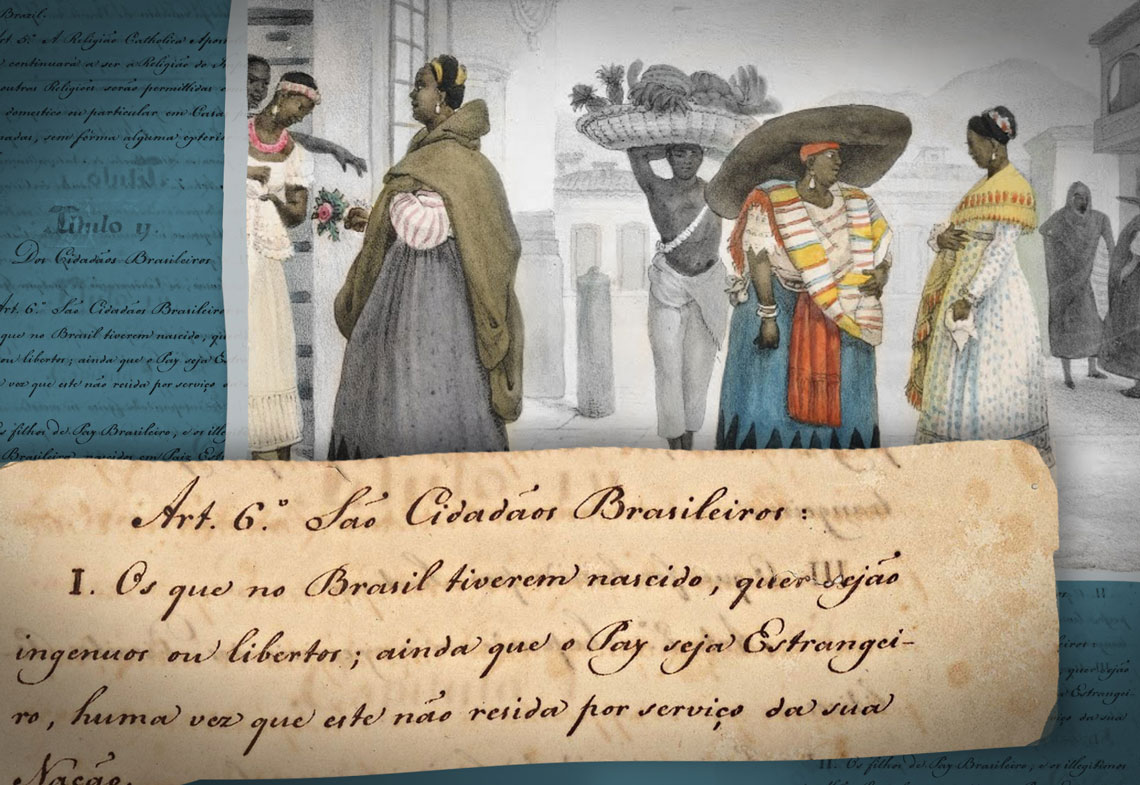 Brasil.
rt. 5.º A Religião Catholica Apos
continuará a ser a Religião do
outras Religioes serão permittidas
domestico ou particular em Casa
sem fórma alguma exterio
Titulo 2º.
Dos Cidadãos Brasileiros
Art. 6.º São Cidadãos Brasileiros
que no Brasil tiverem nascido, qu
ou libertos; ainda que o Pay seja Es
vez que este não resida por serviço
filhos de Pay Brasileiro, e os illeg
Art. 6.º São Cidadãos Brasileiros:
I. Os que no Brasil tiverem nascido, quer sejão
ingenuos ou libertos; ainda que o Pay seja Estrangei-
ro, huma vez que este não resida por serviço da sua
Nação.
quer sejão
Estrangei
da sua
II. Os filhos de Pay Brasileiro, e os illegitimos